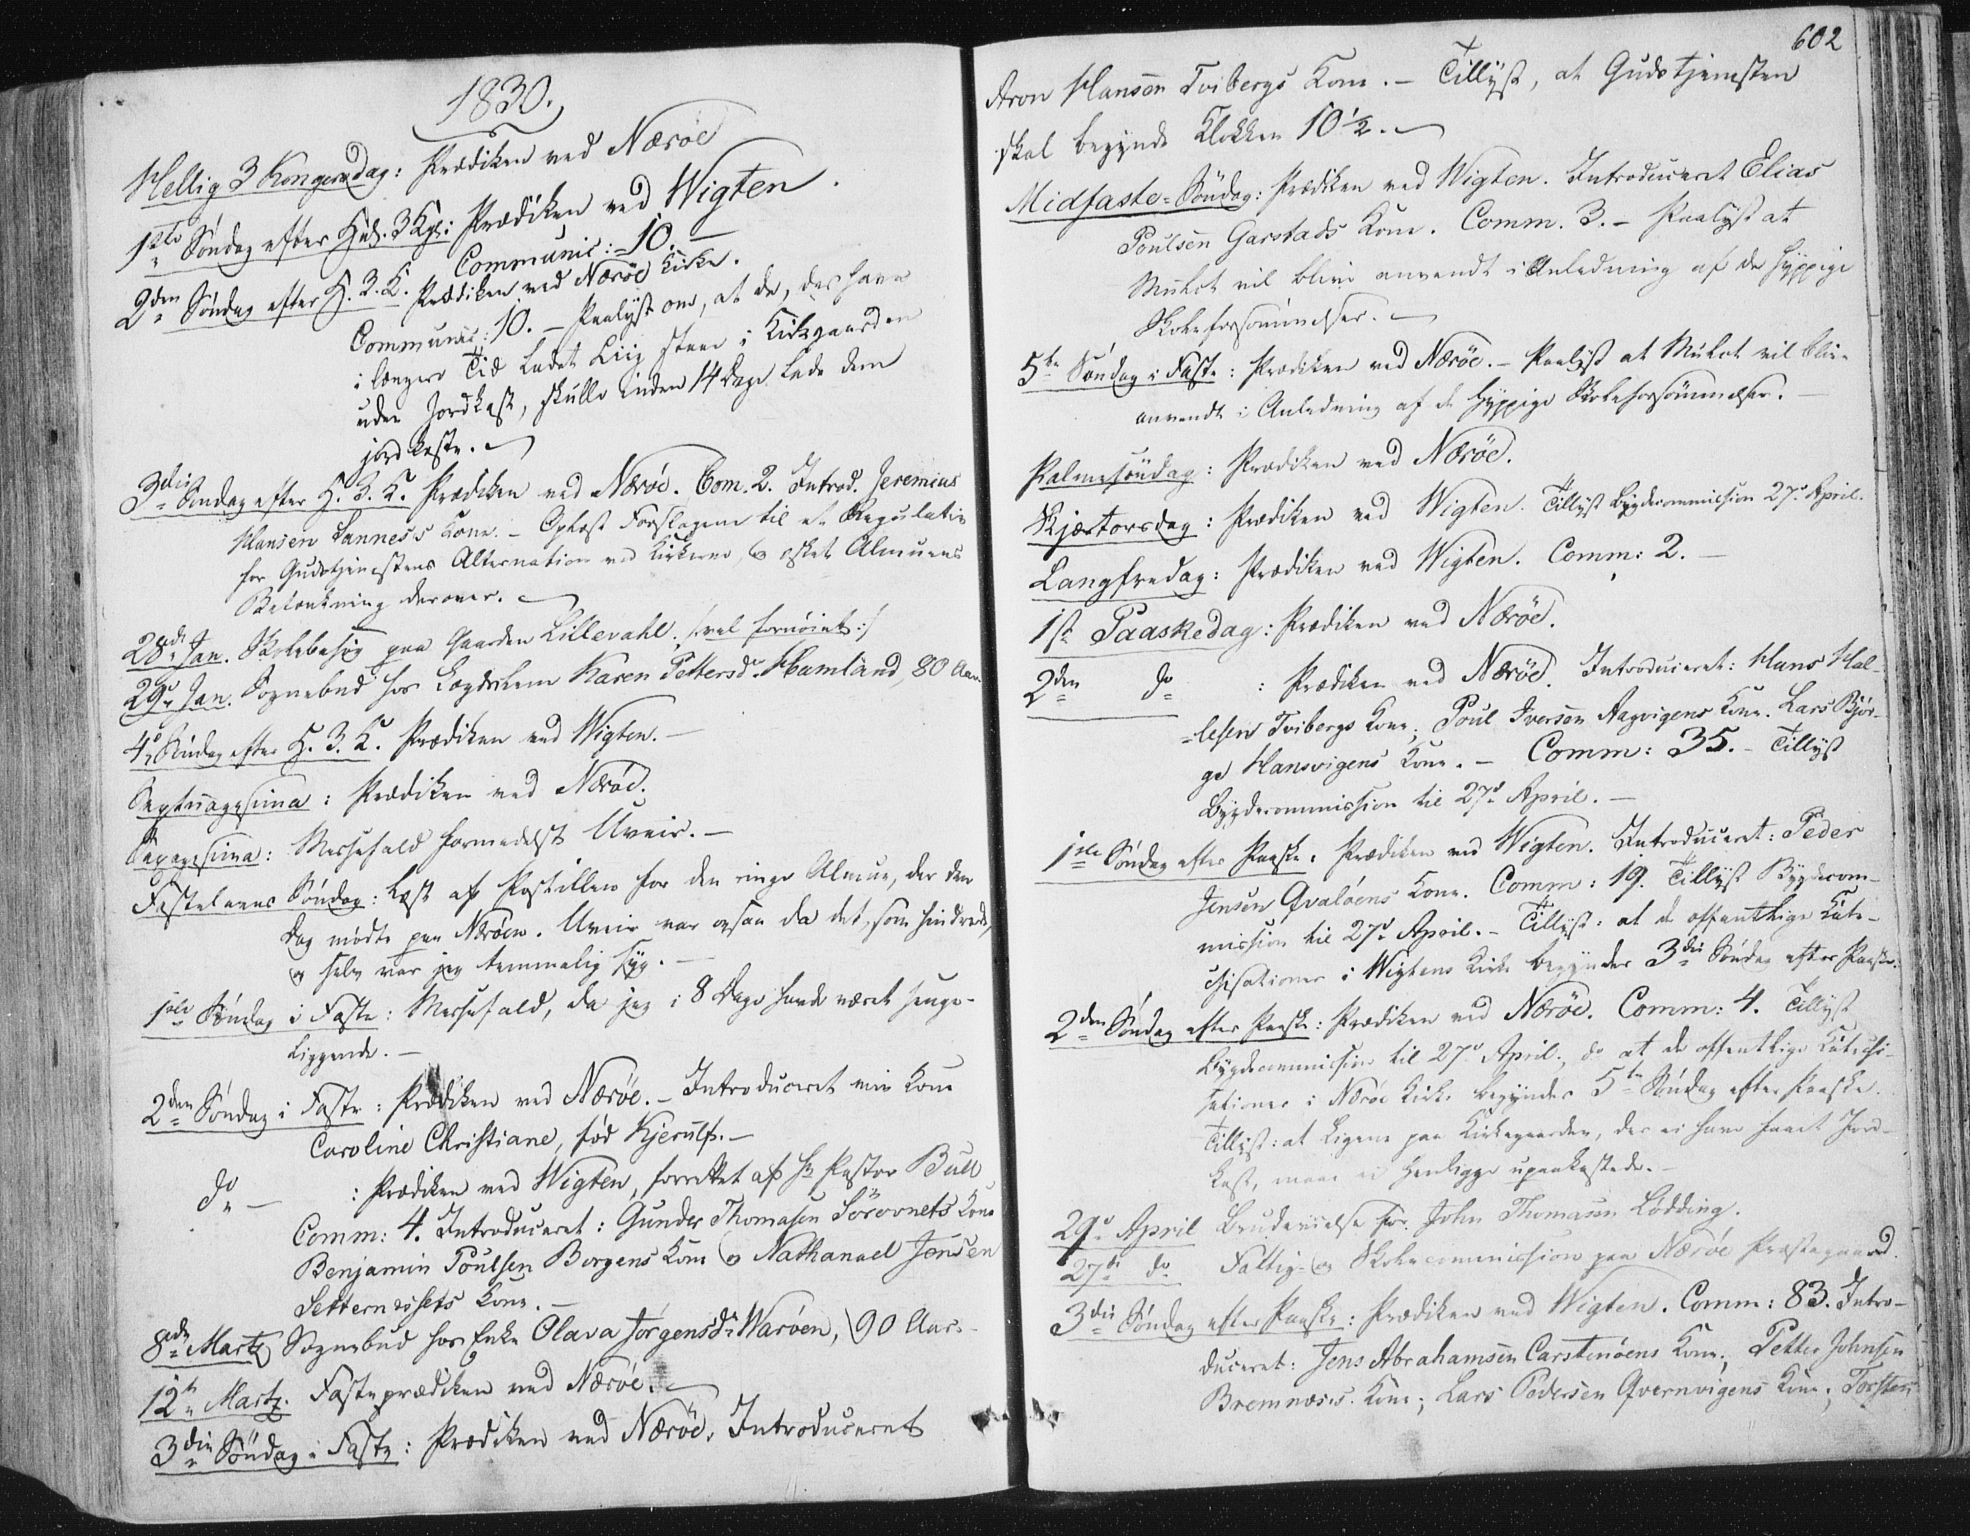 1830.
Hellig 3 Kongersdag: Prædiken ved Nærøe
1ste Søndag efter Hel. 3 Kgr: Prædiken ved Wigten.
Communic: 10. —
2den Søndag efter H. 3. K. Prædiken ved Nærøe Kirke.
Communic: 10. — Paalyst om, at de, der have
i længere Tid ladet Liig staae i Kirkgaarden
uden Jordkast, skulle inden 14 Dage lade dem
jordkaste. —
3die Søndag efter H. 3. K. Prædiken ved Nærøe. Com. 2. Introd. Jeremias
Hansen Sannes's Kone. — Oplæst Forslagene til et Regulativ
for Gudstjenestens Alternation ved Kirkerne og æsket Almuens
Betænkning derover. —
28de Jan. Skolebesøg paa Gaarden Lillevahl. /: vel fornøiet :/
29de Jan. Sognebud hos Lægdslem Karen Pettersdr. Hamland, 80 Aar.
4de Søndag efter H. 3. K. Prædiken ved Wigten. —
Septuagesima: Prædiken ved Nærøe.
Sexagesima: Messefald formedelst Uveir. —
Fastelavns Søndag: Læst af Postillen for den ringe Almue, der den
Dag mødte paa Nærøen. Uveir var ogsaa da det, som hindrede,
og selv var jeg temmelig syg. —
1ste Søndag i Faste: Messefald, da jeg i 8 Dage havde været senge-
liggende. —
2den Søndag i Faste: Prædiken ved Nærøe. — Introduceret min Kone
Caroline Christiane, fød Kjerulf. —
do — : Prædiken ved Wigten, forrettet af Hr Pastor Bull
Comm: 4. Introduceret: Gunder Thomasen Sörovnets Kone
Benjamin Poulsen Borgens Kone og Nathanael Jensen
Setternæssets Kone. —
8de Martz Sognebud hos Enke Olava Jørgensdr. Warøen, 90 Aar. —
12te Martz. Fasteprædiken ved Nærøe. —
3die Søndag i Faste: Prædiken ved Nærøe. Introduceret
602
Aron Hansen Tvibergs Kone. — Tillyst, at Gudstjenesten
skal begynde Klokken 10 1/2. —
Midfaste-Söndag: Prædiken ved Wigten. Introduceret Elias
Poulsen Garstads Kone. Comm. 3. — Paalyst at
Mulct vil blive anvendt i Anledning af de hyppige
Skoleforsömmelser. —
5te Søndag i Faste: Prædiken ved Nærøe. — Paalyst at Mulct vil blive
anvendt i Anledning af de hyppige Skoleforsømmelser. —
Palmesöndag: Prædiken ved Nærøe.
Skjærtorsdag: Prædiken ved Wigten. Tillyst Bygdecommission 27de April.
Langfredag: Prædiken ved Wigten. Comm: 2. —
1ste Paaskedag: Prædiken ved Nærøe.
2den do : Prædiken ved Nærøe. Introduceret: Hans Hal-
lesen Tvibergs Kone. Poul Iversen Aagvigens Kone. Lars Bjør-
ge Hansvigens Kone. — Comm: 35. — Tillyst
Bygdecommission til 27de April. —
1ste Søndag efter Paaske: Prædiken ved Wigten. Introduceret: Peder
Jensen Qvaløens Kone. Comm: 19. Tillyst Bygdecom-
mission til 27de April. — Tillyst: at de offentlige Kate-
chisationer i Wigtens Kirke begynder 3die Søndag efter Paaske.
2den Søndag efter Paaske: Prædiken ved Nærøe. Comm: 4. Tillyst
Bygdecommission til 27de April; do at de offentlige Katechi-
sationer i Nærøe Kirke begynder 5te Søndag efter Paaske.
Tillyst: at Ligene paa Kirkegaarden, der ei have faaet Jord-
kast, maae ei henligge upaakastede. —
29de April Brudevielse for John Thomasen Lødding.
27de do Fattig- og Skolecommission paa Nærøe Præstegaard.
3die Søndag efter Paaske: Prædiken ved Wigten. Comm: 83. Intro-
duceret: Jens Abrahamsen Carstenøens Kone; Petter Johnsen
Bremnæses Kone; Lars Pedersen Qvernvigens Kone; Torsten